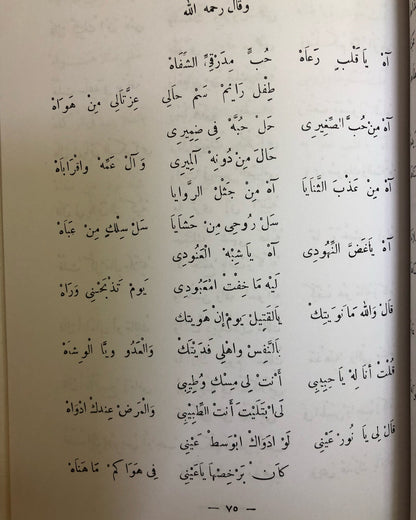 وقال رحمه الله
آهْ يَا قَلْبٍ رَعَاهْ حُبٍّ مِدَرْقِيِّ الشَّفَاهْ
طِفْلٍ رَايِمْ سَمْ حَالِي عِزَّتَالِي مِنْ هَوَاهْ
آهْ مِنْ حُبِّ الصَّغِيرِى حَلّ حُبَّهْ فِى ضِمِيرِى
حَالَ مِنْ دُونِهْ آلِمِيرِى وَ آلْ عَمِّهْ وِاقْرَابَاهْ
آهْ مِنْ عَذْبَ الثَّنَايَا آهْ مِنْ جَثْلَ الرَّوَايَا
سَلّ رُوحِى مِنْ حَشَايَا سَلّ سِلْكٍ مِنْ عَبَاهْ
آهْ يَا غَضَّ النّهُودِى آهْ يَا شِبْهَ الْعَنُودِى
لَيْهْ مَا خِفْتْ امْعَبُودِى يَومْ تَذْبَحْنِي وَرَاهْ
قَالْ وَاللهْ مَا نَوَيتِكْ يَا لقَتِيلْ يَومْ إنْ هَوَيتِك
بِالنَّفِسْ وِاهْلِي فَدَيْتَكْ وَالْعَدُو وِيَّا الْوِشَاهْ
قُلْتْ أنَا لِهْ يَا حِبِيبِى أَنْتْ لِى مِسْكِ وْطِيبِى
لَى ابْتَلَيْتْ أَنتَ الطّبِيبِى وَالْمَرَضْ عِنْدِكْ ادْوَاهْ
قَالْ لِى يَا نُورْ عَيْنِى لَوْ ادْوَاكْ ابْوَسْطْ عَيْنِى
كَانْ يَرْخِصْ يَا عَيْنِى فِى هَوَاكمْ مَا هَنَاهْ
— ٧٥ —